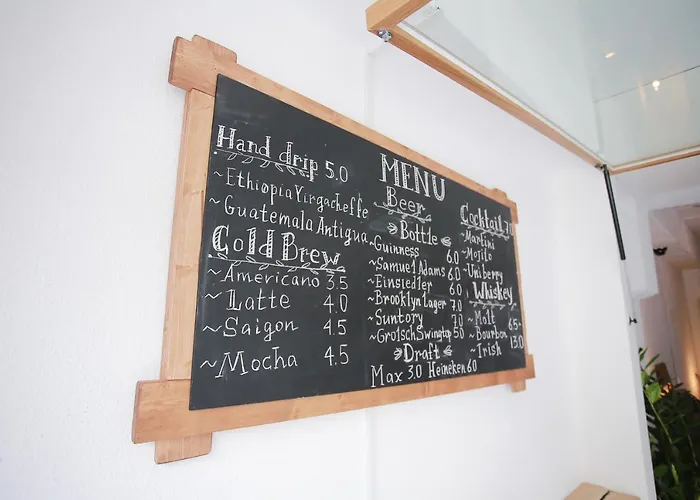 Hand drip 5.0
~Ethiopia Yirgacheffe
~Guatemala Antigua
Cold Brew
~Americano 3.5
~Latte 4.0
~Saigon 4.5
~Mocha 4.5
MENU
Beer
Bottle
~Guinness 6.0
~Samuel Adams 6.0
~Einsiedler 6.0
~Brooklyn Lager 7.0
~Suntory 7.0
~Grolsch Swingtop 5.0
Draft
Max 3.0 Heineken 6.0
Cocktail
~Martini
~Mojito
~Uniberry
Whiskey
~Malt
~Bourbon 6.5~
~Irish 13.0